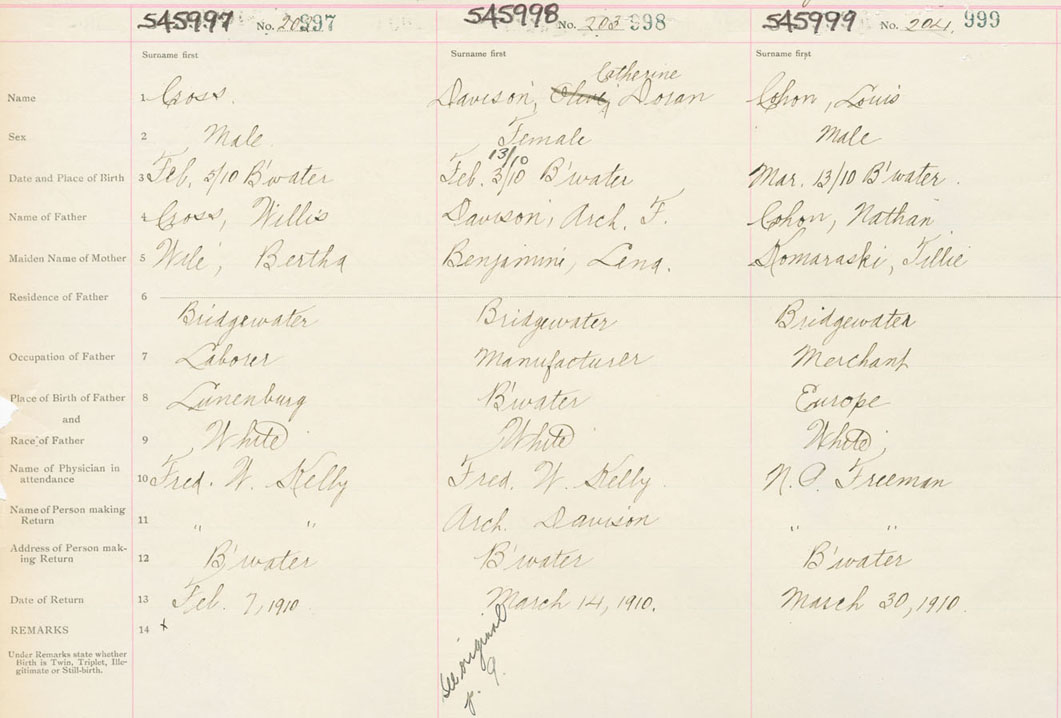 545997 No. 997 545998 No. 203 998 545999 No. 204. 999
Surname first Surname first Surname first
Catherine
Name 1 Cross. Davison, Olive, Doran Cohon, Louis
Sex 2 Male. Female Male
13/10
Date and Place of Birth 3 Feb. 5/10 B'water Feb. 3/10 B'water Mar. 13/10 B'water.
Name of Father 4 Cross, Willis Davison, Arch. F. Cohon, Nathan
Maiden Name of Mother 5 Wile, Bertha Benjamine, Lena. Komaraski, Tillie
Residence of Father 6
Bridgewater Bridgewater Bridgewater
Occupation of Father 7 Laborer Manufacturer Merchant
Place of Birth of Father 8 Lunenburg B'water Europe
and
Race of Father 9 White White White
Name of Physician in
attendance 10 Fred. W. Kelly Fred. W. Kelly N. P. Freeman
Name of Person making
Return 11 " " Arch. Davison " "
Address of Person mak-
ing Return 12 B'water B'water B'water
Date of Return 13 Feb. 7, 1910 March 14, 1910. March 30, 1910
REMARKS 14 x
Under Remarks state whether
Birth is Twin, Triplet, Ille-
gitimate or Still-birth.
See original
p. 9.